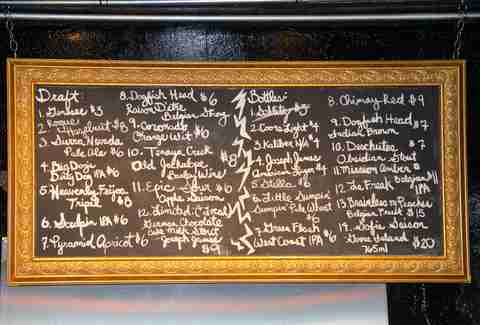 Draft:
1. Guinness $3
2. Rogue
Hazelnut $8
3. Sierra Nevada
Pale Ale $6
4. Flying Dogs
Dirty Dog IPA $6
5. Heavenly Feijoa
Tripel $8
6. Sculpin IPA $6
7. Pyramid Apricot $6
8. Dogfish Head $6
Raison D'etre
Belgian Strong
9. Coronado
Orange Wit $6
10. Tonaya Creek
Old Jackalope $8
Barley Wine
11. Epic Sour $6
Apple Saison
12. Limited: Local
German Chocolate
Cake Milk Stout
Joseph James
$9
Bottles:
1.
2. Coors Light $4
3. Kaliber N/A $4
4. Joseph James
American Lager $4
5. Stella $6
6. Little Sumpin'
Sumpin' Pale Wheat
$6
7. Green Flash
West Coast IPA $6
8. Chimay Red $9
9. Dogfish Head $7
Indian Brown
10. Deschutes $7
Obsidian Stout
11. Mission Amber $
12. The Freak Belgian $11
IPA
13. Brainless on Peaches
Belgian Fruit $15
14. Sofie Saison
Goose Island $20
765ml